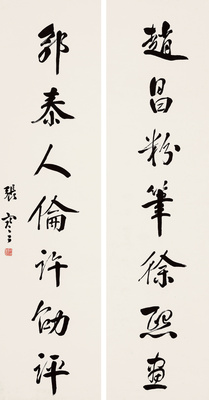 趙昌粉筆徐熙畫
郭泰人倫許劭評
張寒